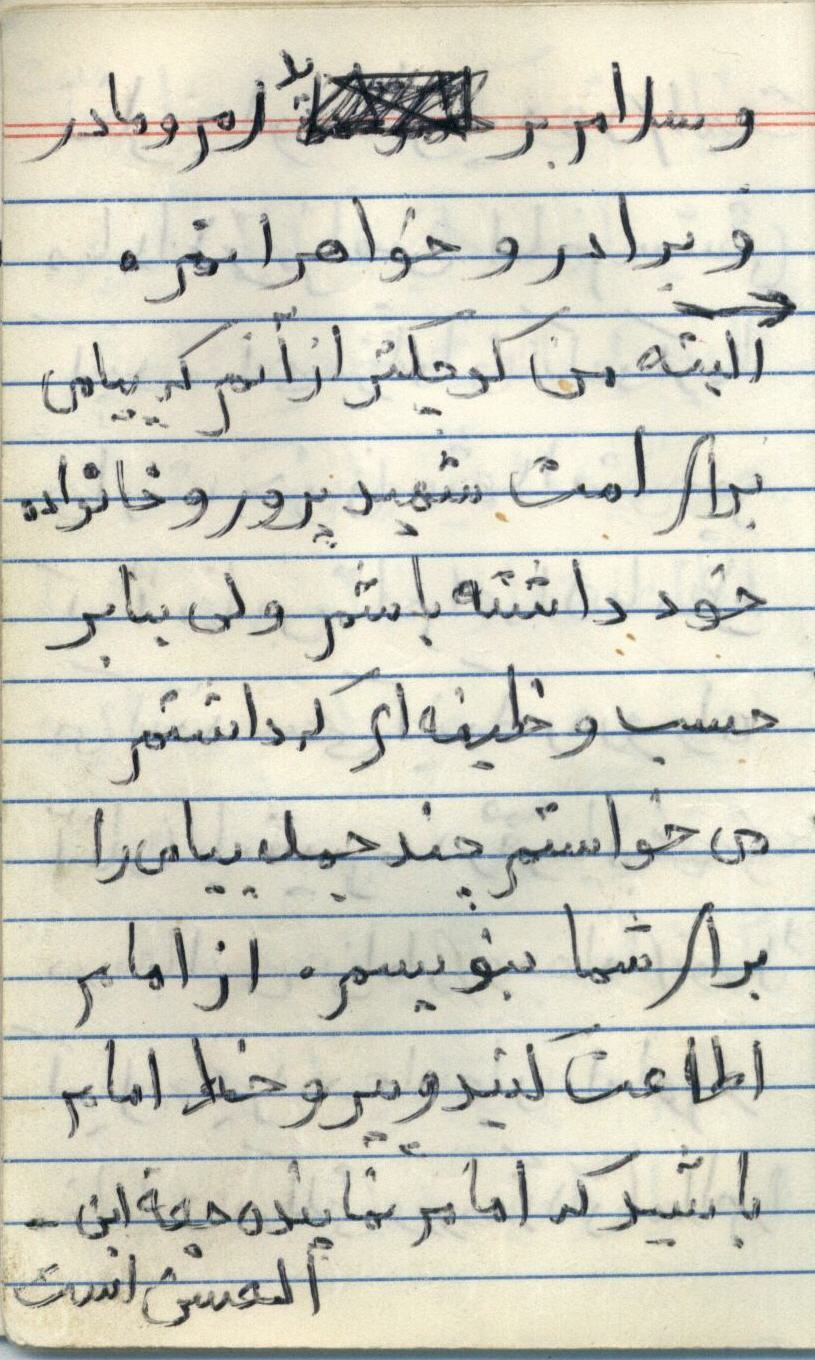 و سلام بر پدرم و مادر
و برادر و خواهرانم.
البته من کوچکتر از آنم که پیامی
برای امت شهید پرور و خانواده
خود داشته باشم ولی بنابر
حسب وظیفه ای که داشتم
می خواستم چند جمله پیامی را
برای شما بنویسم. از امام
اطاعت کنید و پیرو خط امام
باشید که امام نماینده حجة ابن -
الحسن است